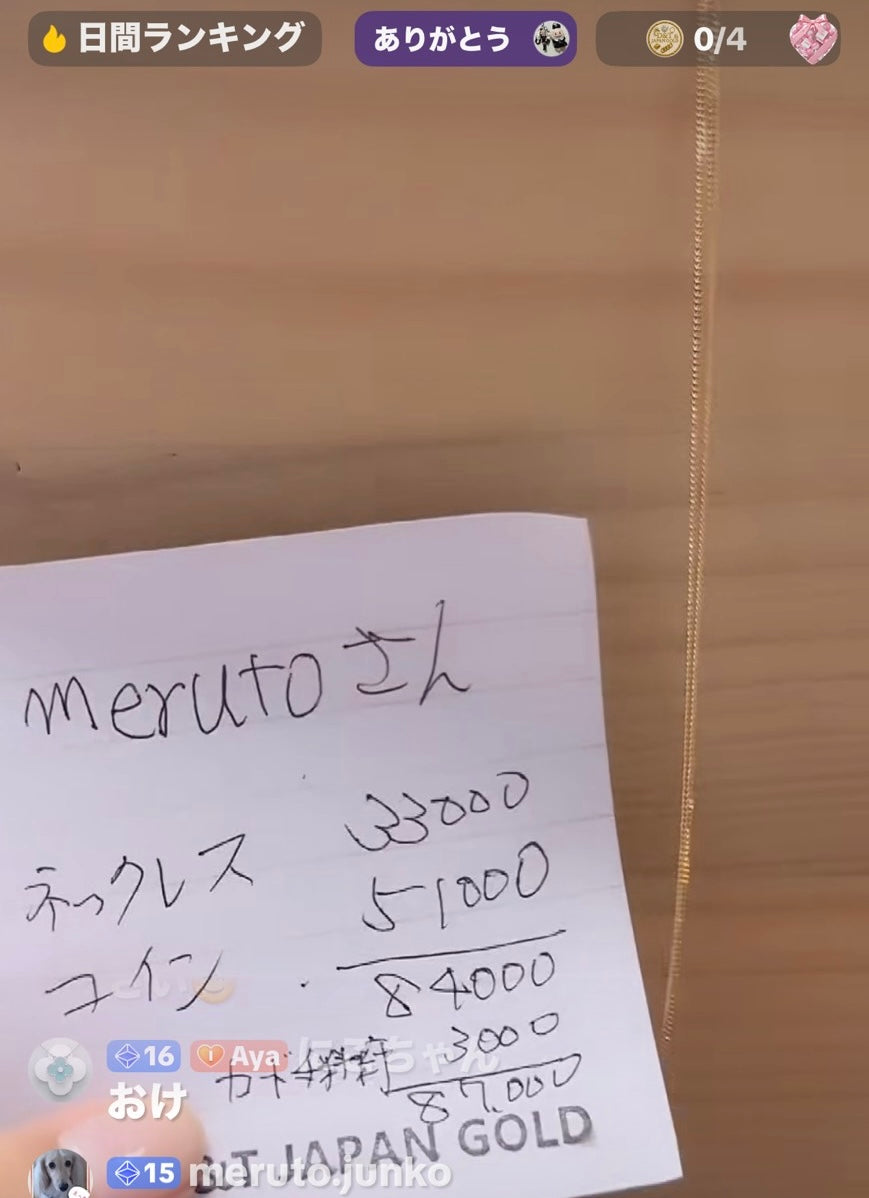 日間ランキング
ありがとう
0/4
merutoさん
ネックレス 33000
コイン 51000
84000
3000
87.000
16 Aya
おけ
&T JAPAN GOLD
15 meruto.junko